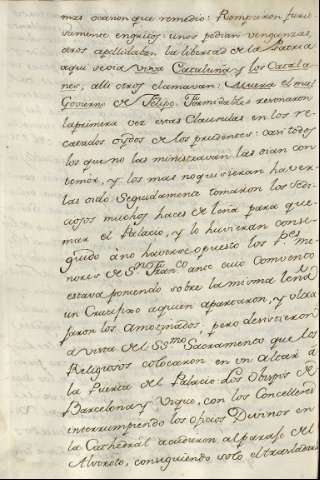 mas ocasion que remedio: Rompieron furio-
samente en gritos: unos pedian venganzas,
otros apellidaban la libertad de la Patria
aqui se oia viva Cataluña y los Catala-
nes, alli otros clamavan: Muera el mal
Govierno de Felipo. Formidables resonaron
la primera vez estas Clausulas en los re-
catados oydos de los prudentes: casi todos
los que no las ministravan las oian con
temor, y los mas no quisieran haver-
las oido. Seguidamente tomaron los sedi-
ciosos muchos haces de leña para que-
mar el Palacio, y lo huvieran conse-
guido á no haverse opuesto los Pes
nores de Sn Franco ante cuio Convento
estava poniendo sobre la misma leña
un Crucifixo aquien apartaron, y ultra
jaron los Amotinados, pero desistieron
a vista del Ssmo Sacramento que los
Religiosos colocaron en un altar á
la Puerta del Palacio. Los Obispos de
Barcelona y Urgel, con los Concelleres
interrumpiendo los oficios Divinos en
la Cathedral acudieron al paraje del
Alvoroto, consiguiendo solo el trasladar